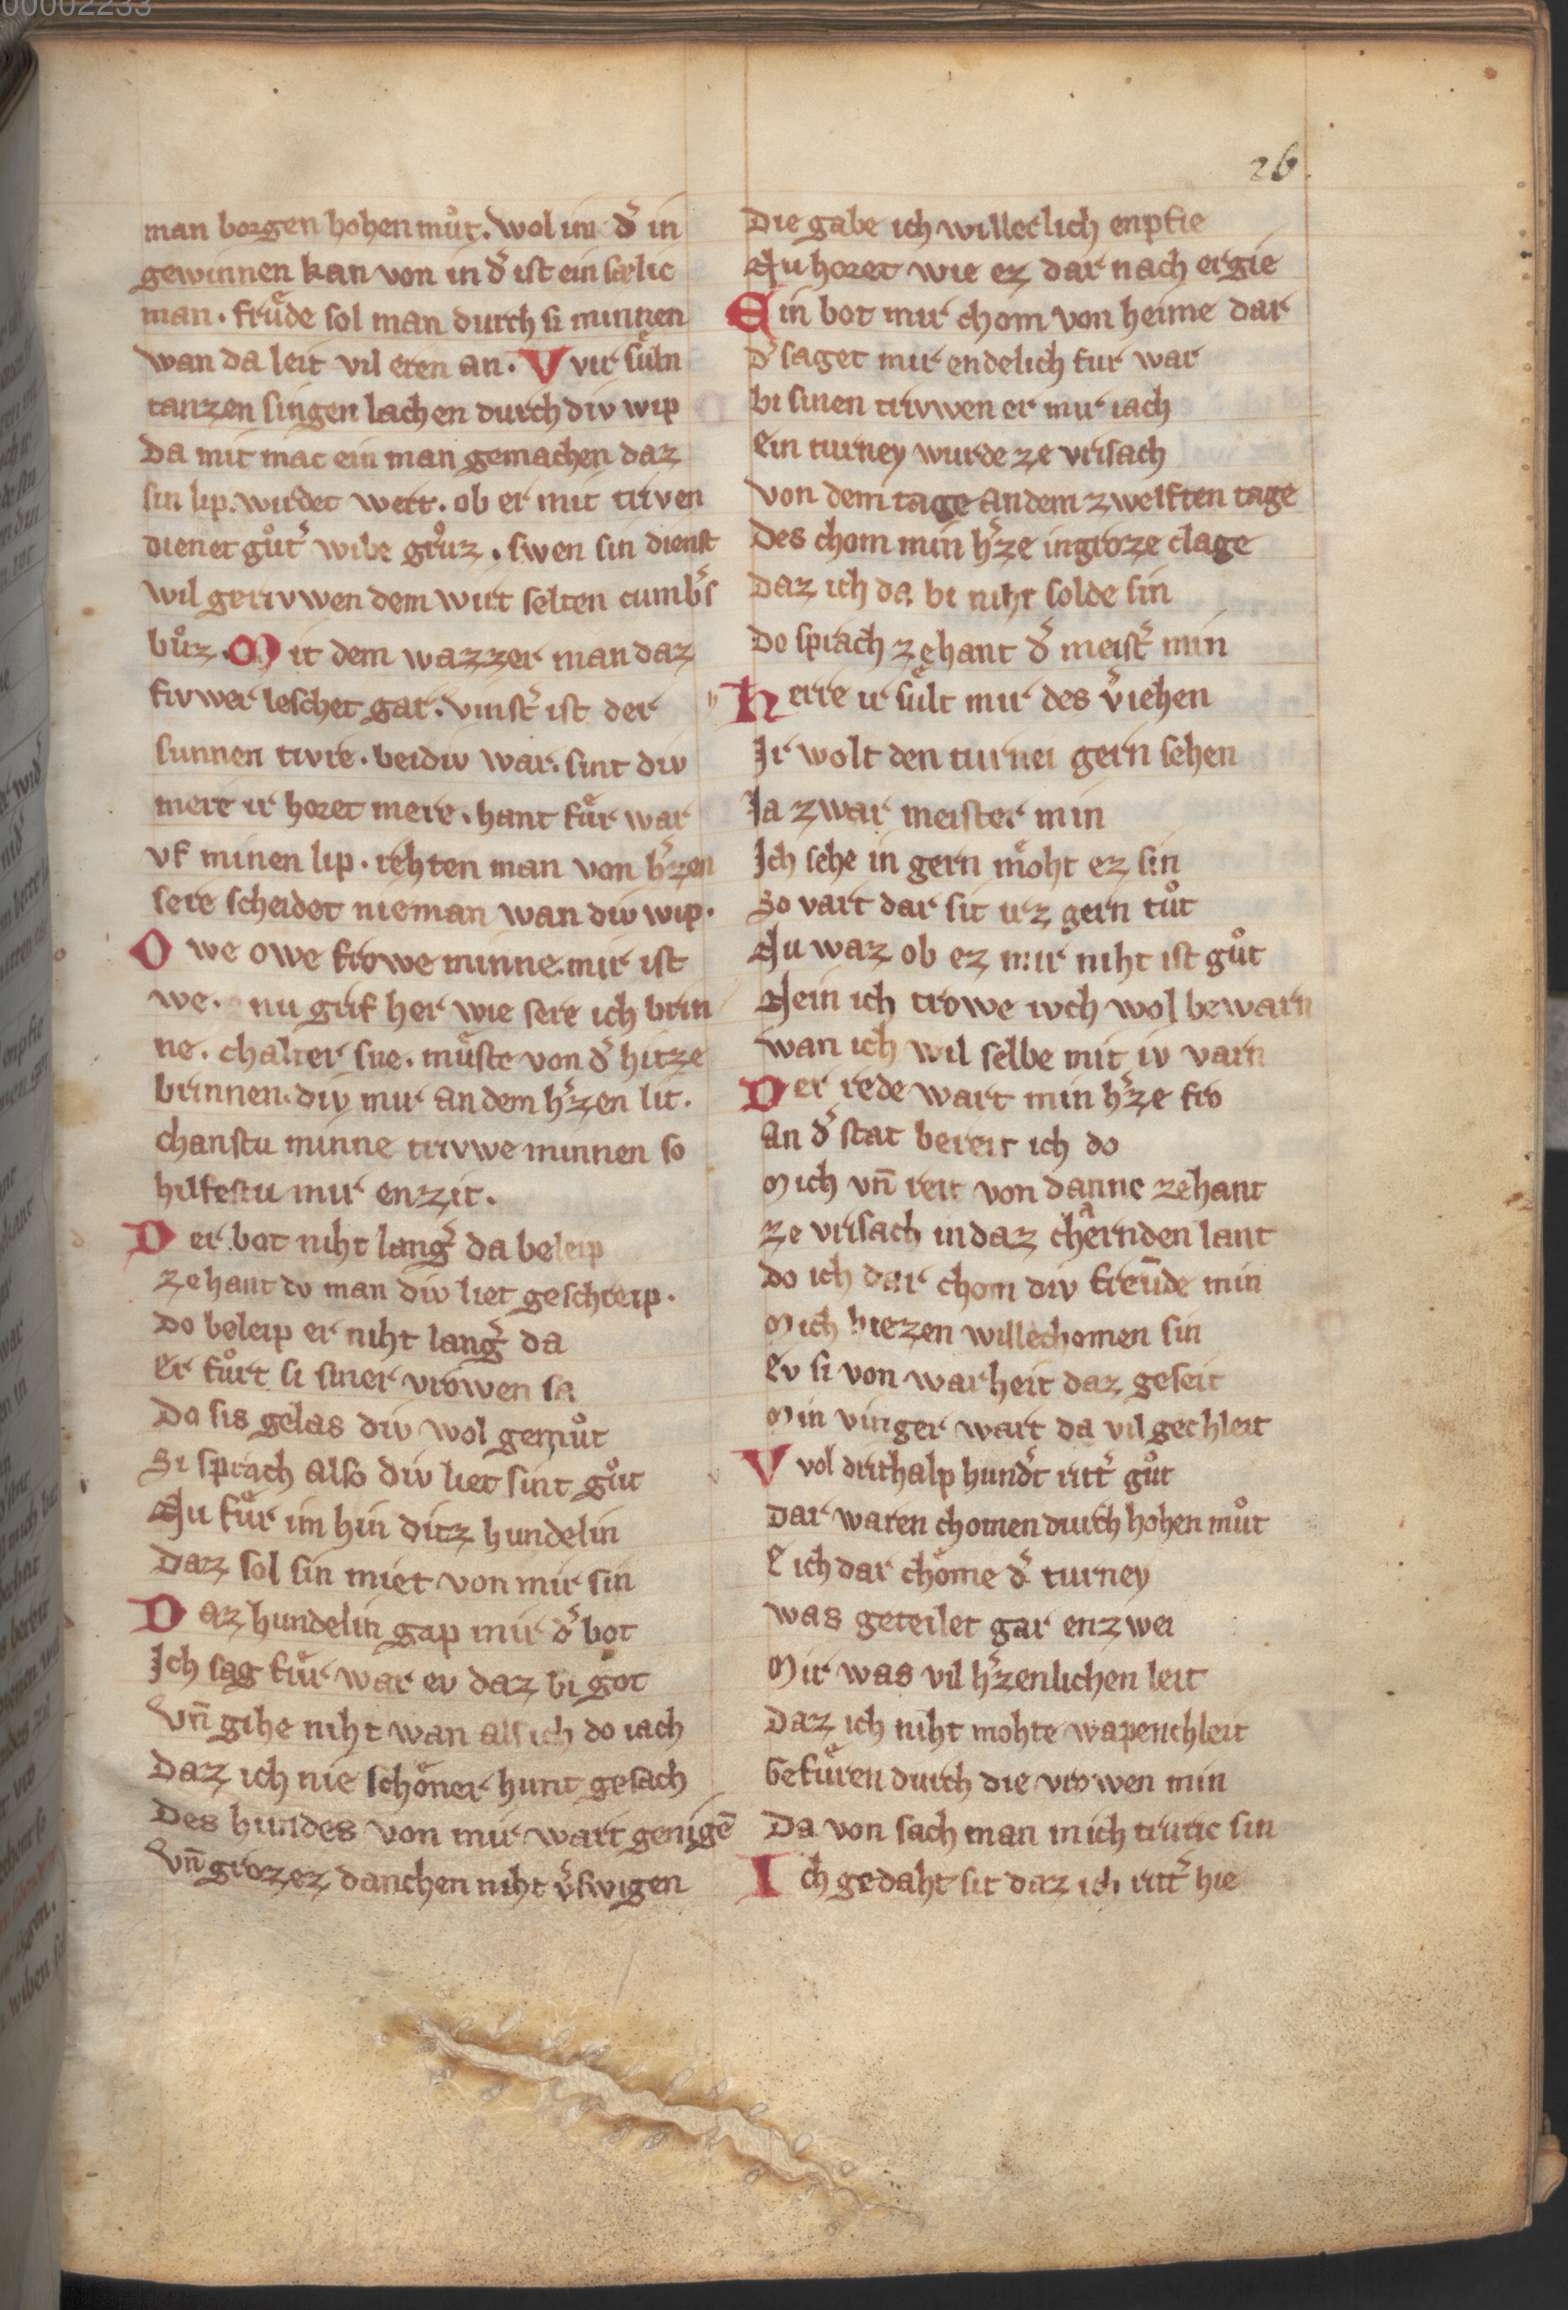 00002233
26.
man borgen hohen můt. wol im d͛ in
gewinnen kan von in d͛ ist ein sælic
man. frude sol man durch si minnen
wan da leit vil eren an. Vvir suͤln
tanzen singen lachen durch div wip
Da mit mac ein man gemachen daz
sin lip. wirdet wert. ob er mit triven
dienet gůt͛ wibe grůz. swen sin dienst
wil gerivwen dem wirt selten cumb͛s
bůz. Mit dem wazzer man daz
fivwer leschet gar. vinst͛ ist der
sunnen tivre. beidiv war. sint div
mere ir horet mere. hant fuͤr war
vf minen lip. rehten man von h͛zen
sere scheidet nieman wan div wip.
Owe owe frowe minne. mir ist
we. nu grif her wie sere ich brin
ne. chalter sne. muͤste von d͛ hitze
brinnen. div mir an dem h͛zen lit.
chanstu minne trivwe minnen so
hilfestu mir enzit.
Der bot niht lang͛ da beleip
zehant do man div liet geschreip.
Do beleip er niht lang͛ da
Er fůrt si siner vrowen sa
Do sis gelas div wol gemůt
Si sprach also div liet sint gůt
Nu fuͤr im hin ditz hundelin
Daz sol sin miet von mir sin
Daz hundelin gap mir d͛ bot
Ich sag fuͤr war ev daz bi got
Vn̄ gihe niht wan als ich do iach
Daz ich nie schoͤner hunt gesach
Des hundes von mir wart genigē
Vn̄ grozez danchen niht v͛swigen
Die gabe ich willeclich enpfie
Nu horet wie ez dar nach ergie
Ein bot mir chom von heime dar
d͛ saget mir endelich fur war
bi sinen trivwen er mir iach
Ein turney wurde ze vrisach
von dem tage an dem zwelften tage
Des chom min h͛ze in groze clage
Daz ich da bi niht solde sin
Do sprach zehant d͛ meist͛ min
Herre ir suͤlt mir des v͛iehen
Ir wolt den turnei gern sehen
Ja zwar meister min
Ich sehe in gern moͤht ez sin
So vart dar sit irz gern tůt
Nu waz ob ez mir niht ist gůt
Nein ich trowe ivch wol bewarn
wan ich wil selbe mit iv varn
Der rede wart min h͛ze fro
an d͛ stat bereit ich do
Mich vn̄ reit von danne zehant
ze vrisach in daz chernden lant
do ich dar chom div freūde min
Mich hiezen willechomen sin
Ev si von warheit daz geseit
Min vinger wart da vil gechleit
Vvol drithalp hund͛t ritt͛ gůt
Dar waren chomen durch hohen můt
E ich dar choͤme d͛ turney
was geteilet gar enzwei
Mir was vil h͛zenlichen leit
Daz ich niht mohte wapenchleit
gefuͤren durch die vrowen min
Da von sach man mich truric sin
Ich gedaht sit daz ich ritt͛ hie